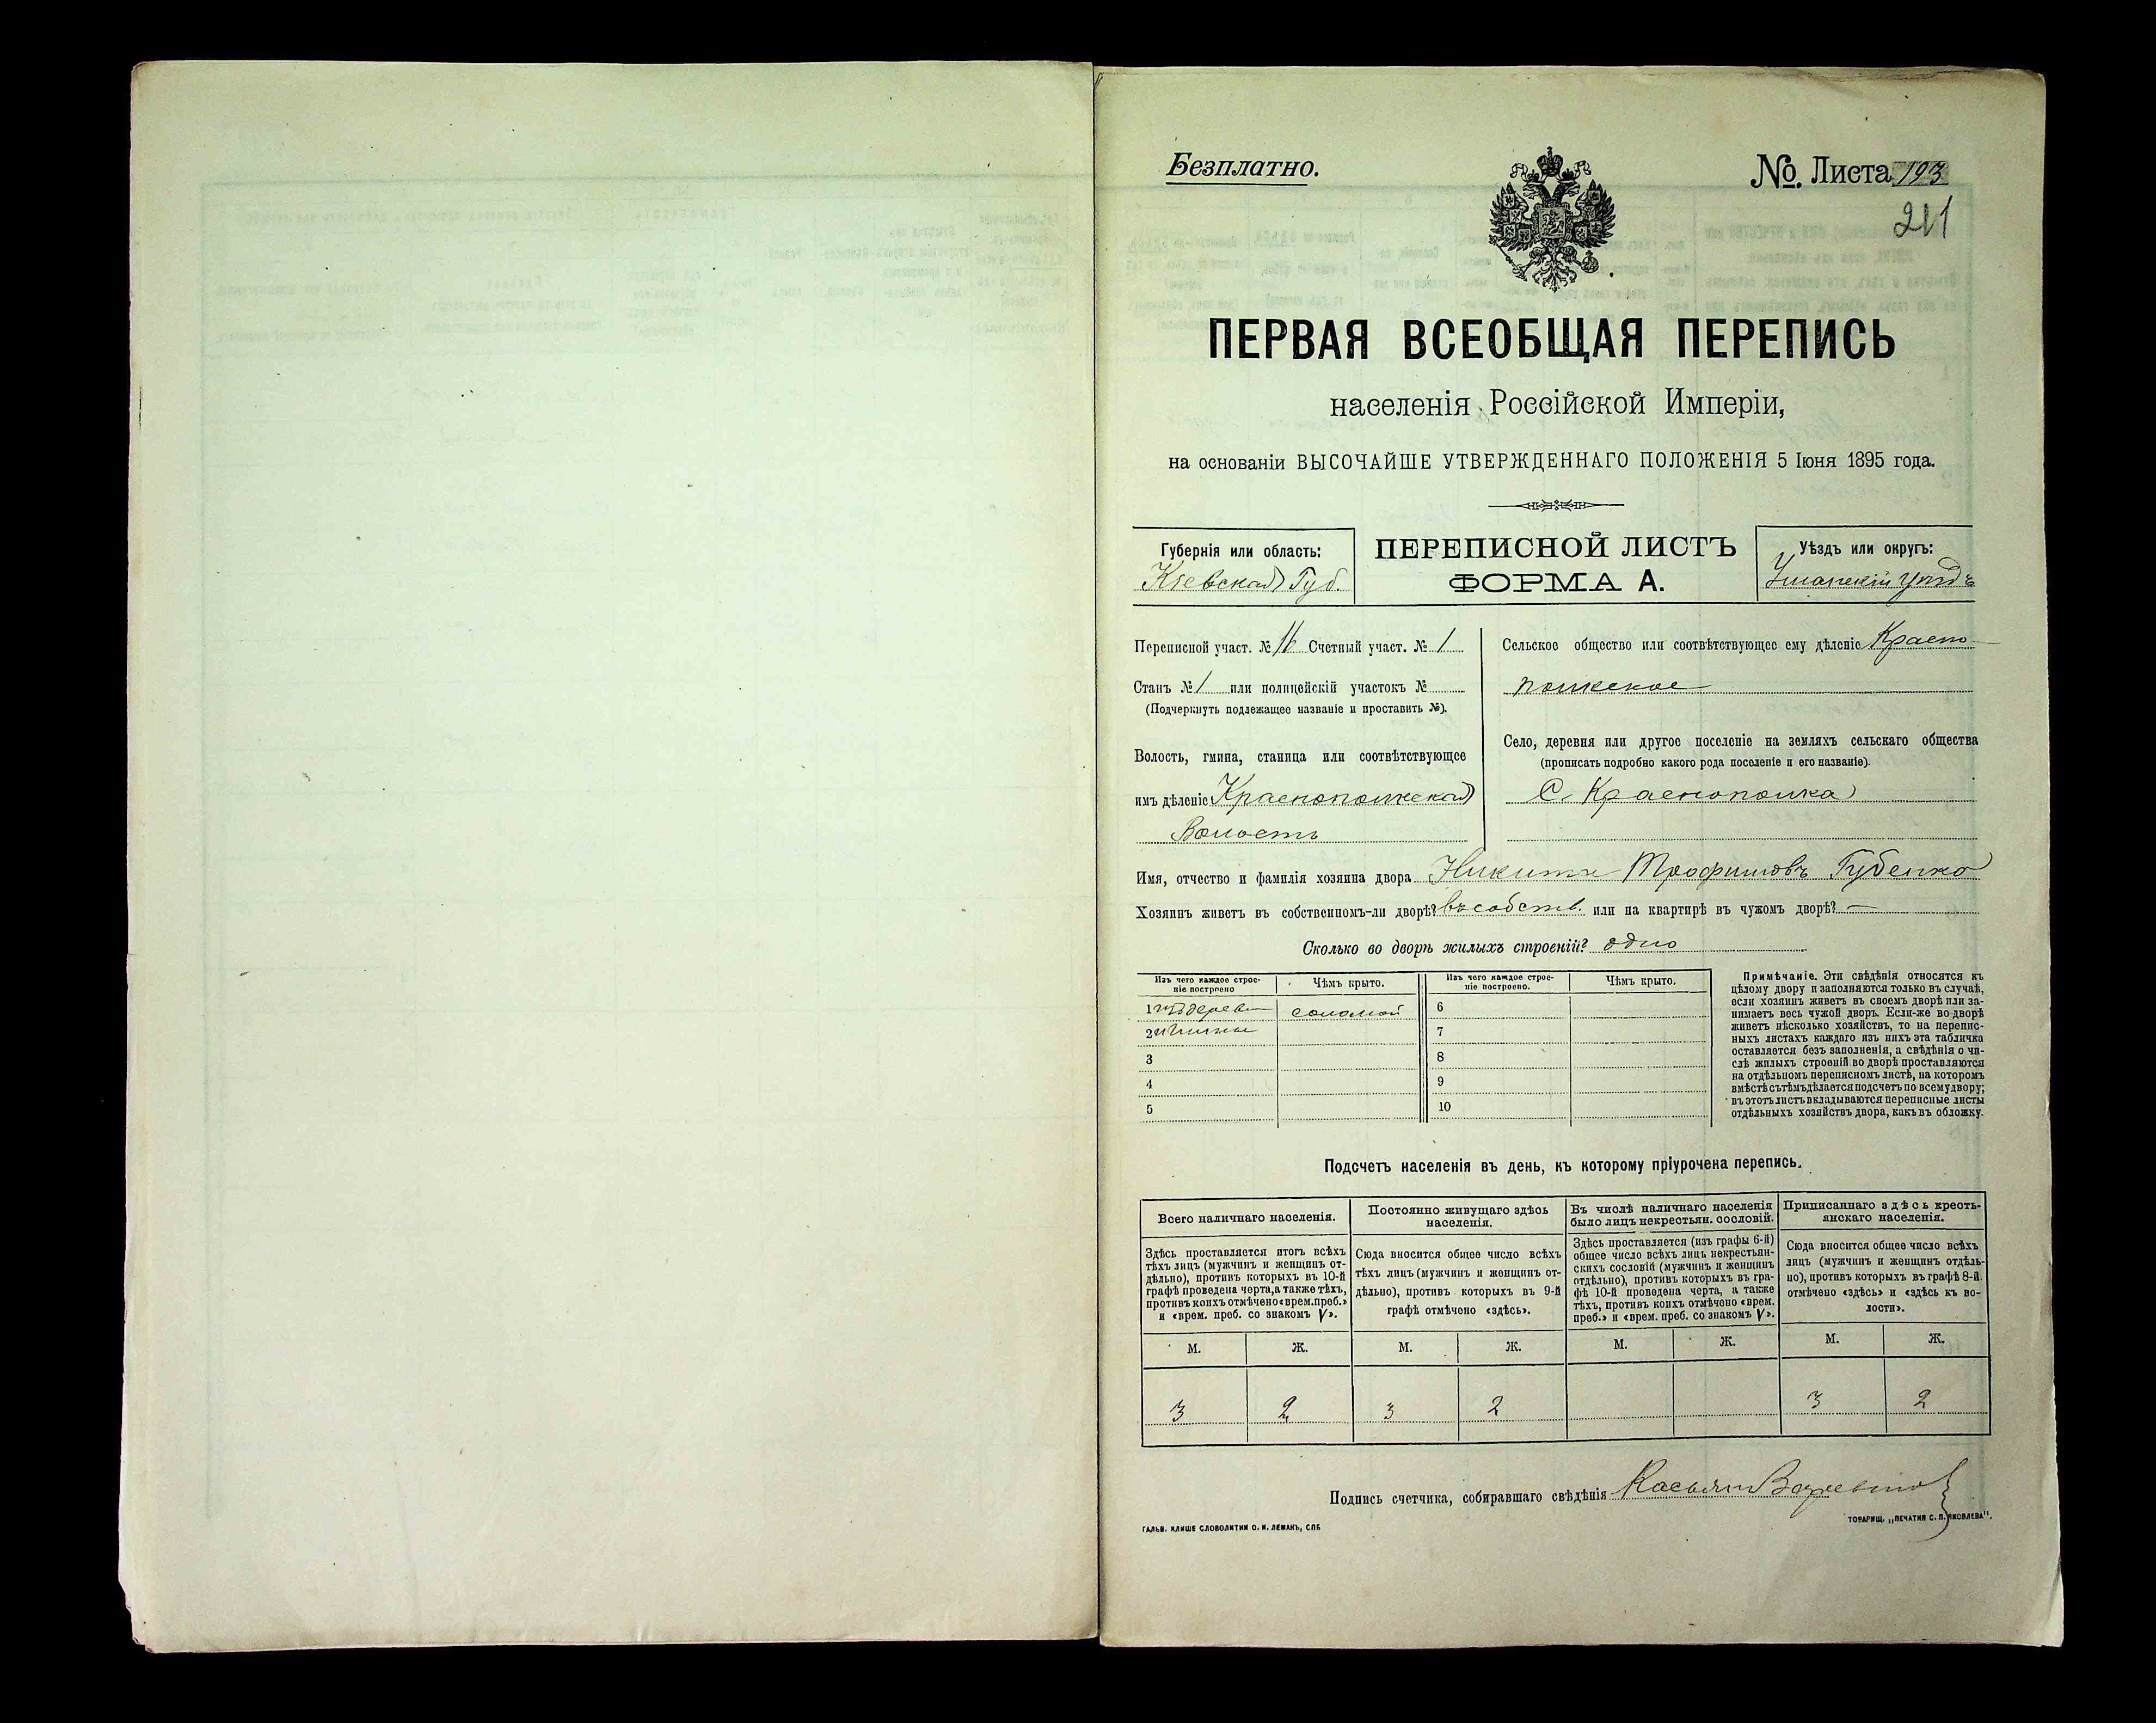 Безплатно.
№. Листа 193
211
ПЕРВАЯ ВСЕОБЩАЯ ПЕРЕПИСЬ
населенія Россійской Имперіи,
на основаніи ВЫСОЧАЙШЕ УТВЕРЖДЕННАГО ПОЛОЖЕНІЯ 5 Іюня 1895 года.
Губернія или область:
Кіевская Губ.
ПЕРЕПИСНОЙ ЛИСТЪ
ФОРМА А.
Уѣздъ или округъ:
Уманскій уѣздъ
Переписной участ. № 16 Счетный участ. № 1
Станъ № 1 или полицейскій участокъ №
(Подчеркнуть подлежащее названіе и проставить №).
Волость, гмина, станица или соотвѣтствующее
имъ дѣленіе Краснополкская
Волость
Сельское общество или соотвѣтствующее ему дѣленіе Красно
полкское
Село, деревня или другое поселеніе на земляхъ сельскаго общества
(прописать подробно какого рода поселеніе и его названіе).
С. Краснополка
Имя, отчество и фамилія хозяина двора Никита Трофимовъ Губенко
Хозяинъ живетъ въ собственномъ-ли дворѣ? въ собств. или на квартирѣ въ чужомъ дворѣ? —
Сколько во дворѣ жилыхъ строеній? одно
Изъ чего каждое строе-
ніе построено
Чѣмъ крыто.
Изъ чего каждое строе-
ніе построено.
Чѣмъ крыто.
1 изъ дерева соломой 6
2 и глины 7
3 8
4 9
5 10
Примѣчаніе. Эти свѣдѣнія относятся къ
цѣлому двору и заполняются только въ случаѣ,
если хозяинъ живетъ въ своемъ дворѣ или за-
нимаетъ весь чужой дворъ. Если-же во дворѣ
живетъ нѣсколько хозяйствъ, то на перепис-
ныхъ листахъ каждаго изъ нихъ эта табличка
оставляется безъ заполненія, а свѣдѣнія о чи-
слѣ жилыхъ строеній во дворѣ проставляются
на отдѣльномъ переписномъ листѣ, на которомъ
вмѣстѣ съ тѣмъ дѣлается подсчетъ по всему двору;
въ этотъ листъ вкладываются переписные листы
отдѣльныхъ хозяйствъ двора, какъ въ обложку.
Подсчетъ населенія въ день, къ которому пріурочена перепись.
Всего наличнаго населенія.
Здѣсь проставляется итогъ всѣхъ
тѣхъ лицъ (мужчинъ и женщинъ от-
дѣльно), противъ которыхъ въ 10-й
графѣ проведена черта, а также тѣхъ,
противъ коихъ отмѣчено «врем. преб.»
и «врем. преб. со знакомъ V».
Постоянно живущаго здѣсь
населенія.
Сюда вносится общее число всѣхъ
тѣхъ лицъ (мужчинъ и женщинъ от-
дѣльно), противъ которыхъ въ 9-й
графѣ отмѣчено «здѣсь».
Въ числѣ наличнаго населенія
было лицъ некрестьян. сословій.
Здѣсь проставляется (изъ графы 6-й)
общее число всѣхъ лицъ некрестьян-
скихъ сословій (мужчинъ и женщинъ
отдѣльно), противъ которыхъ въ гра-
фѣ 10-й проведена черта, а также
тѣхъ, противъ коихъ отмѣчено «врем.
преб.» и «врем. преб. со знакомъ V».
Приписаннаго здѣсь кресть-
янскаго населенія.
Сюда вносится общее число всѣхъ
лицъ (мужчинъ и женщинъ отдѣль-
но), противъ которыхъ въ графѣ 8-й
отмѣчено «здѣсь» и «здѣсь къ во-
лости».
М. Ж. М. Ж. М. Ж. М. Ж.
3 2 3 2 3 2
Подпись счетчика, собиравшаго свѣдѣнія Касьян
ГАЛЬВ. КЛИШЕ СЛОВОЛИТНИ О. И. ЛЕМАНЪ, СПБ
ТОВАРИЩ. „ПЕЧАТНЯ С. П. ЯКОВЛЕВА“.